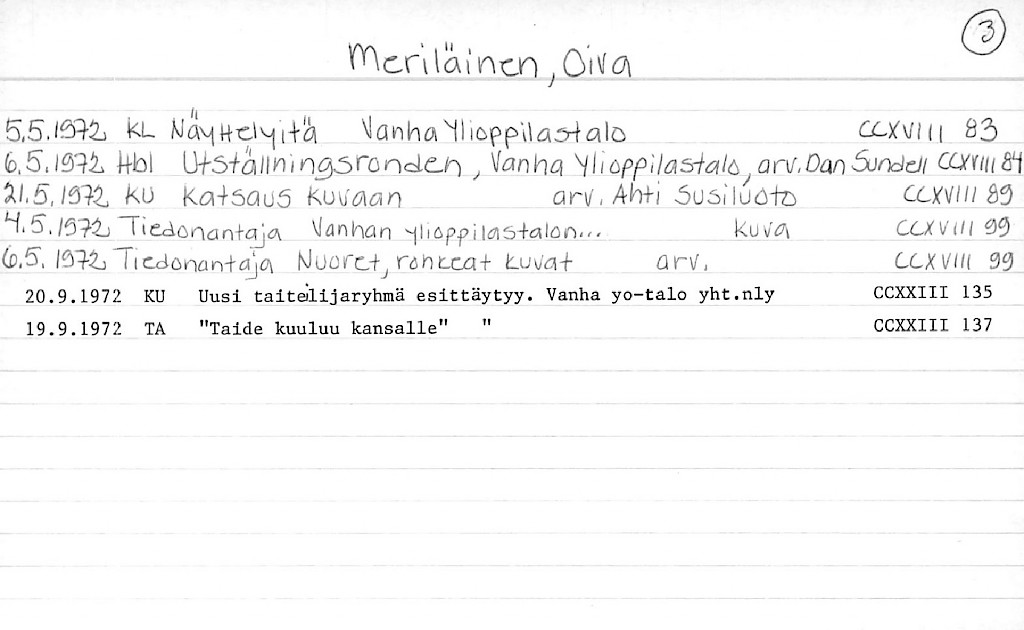 3
Meriläinen, Oiva
5.5.1972 KL Näyttelyitä Vanha Ylioppilastalo CCXVIII 83
6.5.1972 Hbl Utställningsronden, Vanha Ylioppilastalo, arv. Dan Sundell CCXVIII 84
21.5.1972 KU Katsaus kuvaan arv. Ahti Susiluoto CCXVIII 89
4.5.1972 Tiedonantaja Vanhan ylioppilastalon... kuva CCXVIII 99
6.5.1972 Tiedonantaja Nuoret, ronkeat kuvat arv. CCXVIII 99
20.9.1972 KU Uusi taitelijaryhmä esittäytyy. Vanha yo-talo yht.nly CCXXIII 135
19.9.1972 TA "Taide kuuluu kansalle" " CCXXIII 137